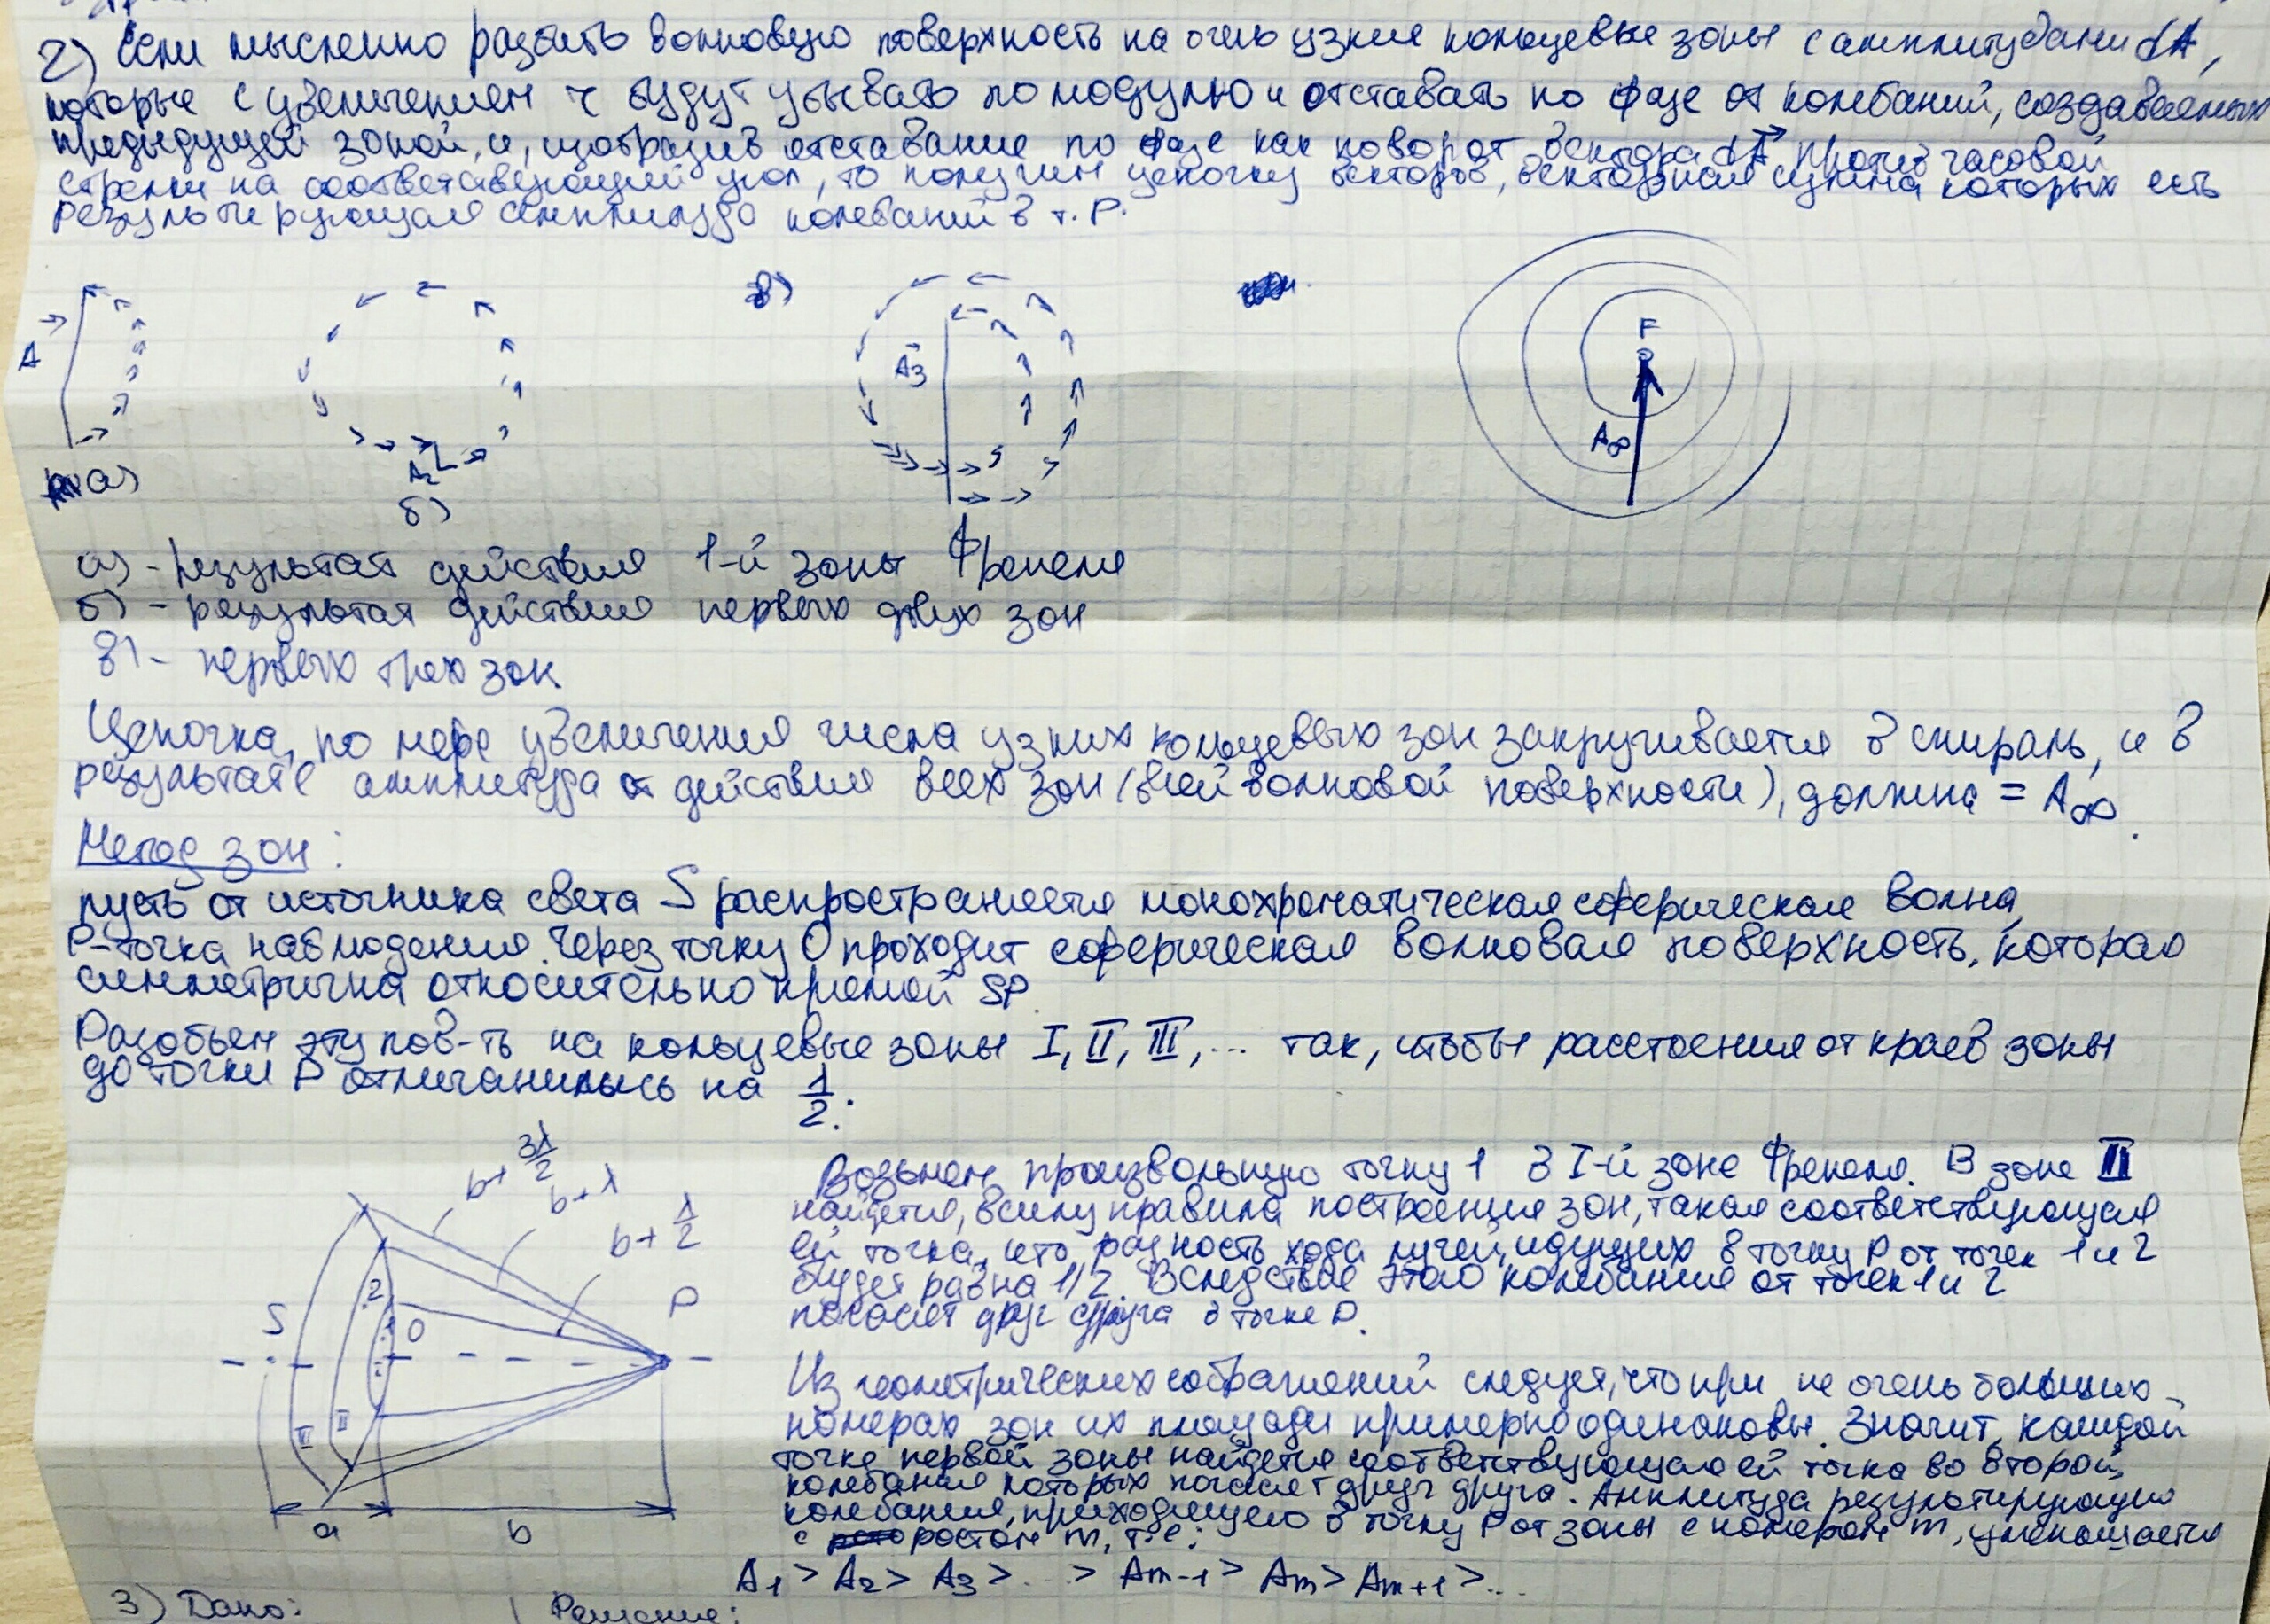 2) Если мысленно разбить волновую поверхность на очень узкие кольцевые зоны с амплитудами dA,
которые с увеличением r будут убывать по модулю и отставать по фазе от колебаний, создаваемых
предыдущей зоной, и, изобразив отставание по фазе как поворот вектора dA против часовой
стрелки на соответствующий угол, то получим цепочку векторов, векторная сумма которых есть
результирующая амплитуда колебаний в т. P.
в)
F
A
A₃
A∞
A₂
а)
б)
а) - результат действия 1-й зоны Френеля
б) - результат действия первых двух зон
в) - первых трех зон.
Цепочка, по мере увеличения числа узких кольцевых зон закручивается в спираль, и в
результате амплитуда от действия всех зон (всей волновой поверхности), должна = A∞.
Метод зон:
пусть от источника света S распространяется монохроматическая сферическая волна,
P-точка наблюдения. Через точку O проходит сферическая волновая поверхность, которая
симметрична относительно прямой SP.
Разобьем эту пов-ть на кольцевые зоны I, II, III, ... так, чтобы расстояния от краев зоны
до точки P отличанились на 1/2.
b+ 3λ/2
b+λ
b+ λ/2
S
2
O
P
III
II
a
b
Возьмем произвольную точку 1 в I-й зоне Френеля. В зоне II
найдется, в силу правила построения зон, такая соответствующая
ей точка, что разность хода лучей, идущих в точку P от точек 1 и 2
будет равна 1/2. Вследствие этого колебания от точек 1 и 2
погасят друг друга в точке P.
Из геометрических соображений следует, что при не очень больших
номерах зон их площади примерно одинаковы. Значит каждой
точке первой зоны найдется соответствующая ей точка во второй,
колебания которых погасят друг друга. Амплитуда результирующего
колебания, приходящего в точку P от зоны с номером m, уменьшается
с ростом m, т.е.:
A₁ > A₂ > A₃ > ... > Am-1 > Am > Am+1 > ...
3) Дано:
Решение: